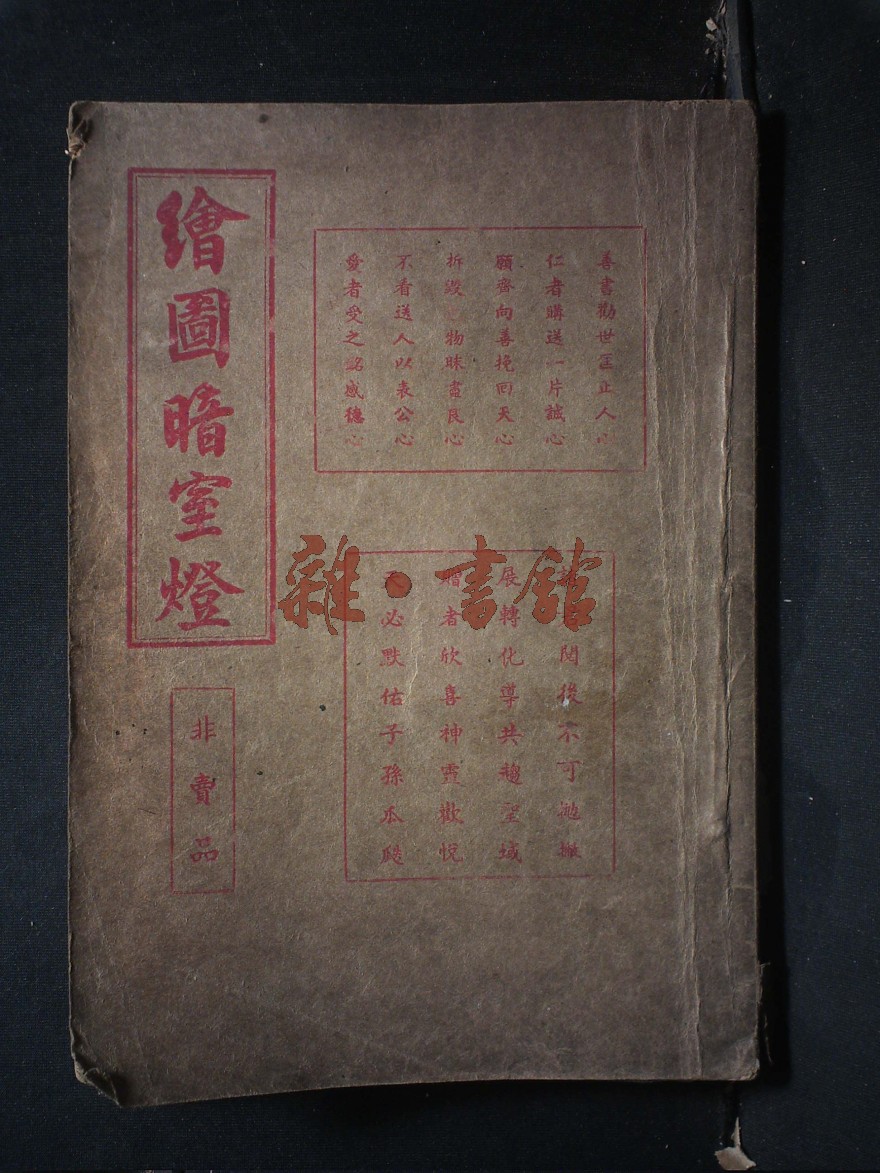 善書勸世匡正人心
仁者購送一片誠心
願齊向善挽回天心
拆毀物昧盡良心
不看送人以表公心
愛者受之銘感德心
閱後不可拋撇
展轉化導共趨聖域
贈者欣喜神靈歡悅
天必默佑子孫瓜瓞
繪圖暗室燈
非賣品
雜·書館